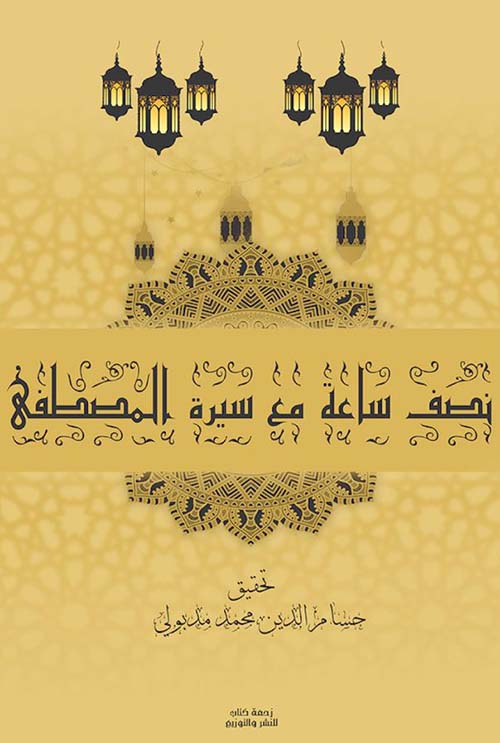 نصف ساعة مع سيرة المصطفى
تحقيق
حسام الدين محمد مدبولي
زحمة كتاب
للنشر والتوزيع